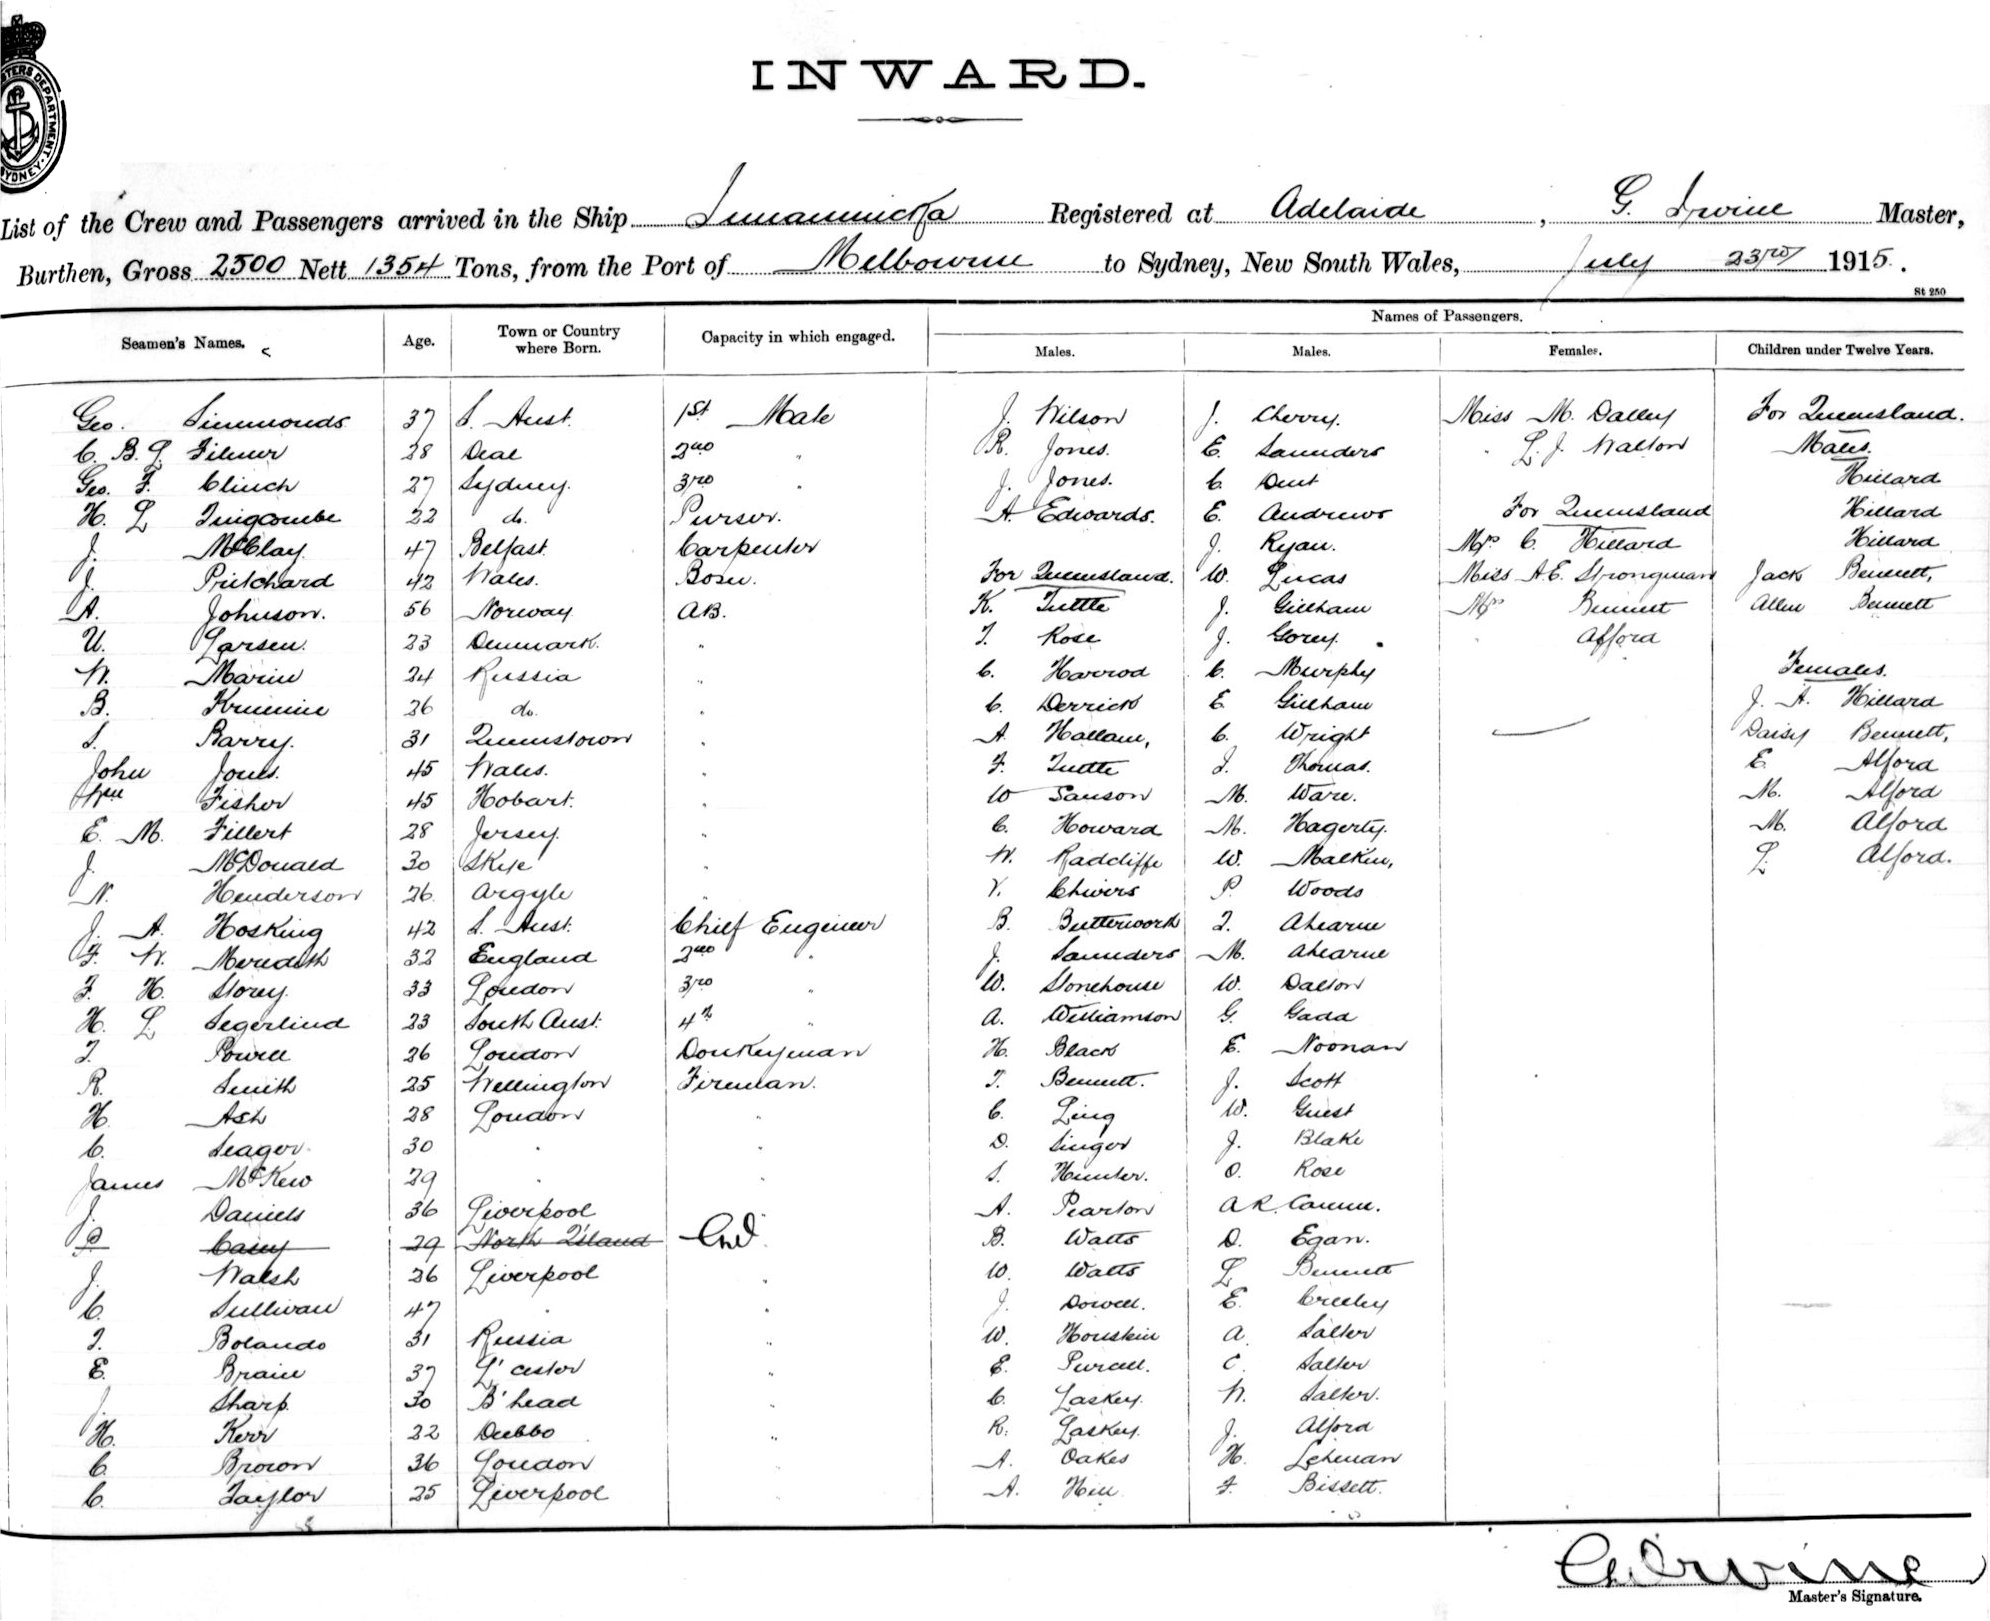 INWARD.
List of the Crew and Passengers arrived in the Ship Registered at Adelaide, G. Irvine Master,
Burthen, Gross 2500 Nett 1354 Tons, from the Port of Melbourne to Sydney, New South Wales, July 23rd 1915.
St 250
Names of Passengers.
Seamen's Names. Age. Town or Country where Born. Capacity in which engaged. Males. Males. Females. Children under Twelve Years.
Geo. Simmonds 37 S. Aust. 1st Mate J. Wilson J. Cherry. Miss M. Dalley For Queensland.
C. B. L. Filmer 28 Deal 2nd " R. Jones. E. Saunders " L. J. Walton Males.
Geo. F. Clinch 27 Sydney. 3rd " J. Jones. C. Dent Hillard
H. L. Tingcombe 22 do. Purser. A. Edwards. E. Andrews For Queensland Hillard
J. McClay. 47 Belfast. Carpenter J. Ryan. Mrs C. Hillard Hillard
J. Pritchard 42 Wales. Bosn. For Queensland. W. Lucas Miss A.E. Strongman Jack Bennett,
A. Johnson. 56 Norway AB. K. Tuttle J. Gillham Mrs Bennett Allen Bennett
U. Larsen. 23 Denmark. " T. Rose J. Gorey. " Afford
W. Marin 24 Russia " C. Harrod C. Murphy Females.
B. Krumine 26 do. " C. Derrick E. Gillham J. A. Hillard
S. Barry. 31 Queenstown " A. Hallam, C. Wright Daisy Bennett,
John Jones. 45 Wales. " F. Tuttle J. Thomas. E. Alford
Wm Fisher 45 Hobart. " W Sanson M. Ware. M. Alford
E. M. Fillert 28 Jersey. " C. Howard M. Hagerty. M. Alford
J. McDonald 30 Skye " W. Radcliffe W. Malkin, L. Alford.
N. Henderson 26. Argyle " V. Chivers P. Woods
J. A. Hosking 42 S. Aust. Chief Engineer B. Butterworth T. Ahearne
F. W. Meredith 32 England 2nd " J. Saunders M. Ahearne
F. H. Storey. 33 London 3rd " W. Stonehouse W. Dalton
H. L. Segerlind 23 South Aust. 4th " A. Williamson G. Gadd
T. Powell 26 London Donkeyman H. Black E. Noonan
R. Smith 25 Wellington Fireman. T. Bennett. J. Scott
H. Ash 28 London " C. Ling W. Guest
C. Seager. 30 " " D. Singer J. Blake
James McKew 29 " " S. Hunter. O. Rose
J. Daniels 36 Liverpool A. Pearton A R Camm.
P. Casey 29 North I'sland B. Watts D. Egan.
J. Walsh 26 Liverpool " W. Watts L. Bennett
C. Sullivan 47 " " J. Dowell. E. Creeley
T. Bolands 31 Russia " W. Houskin A. Salter
E. Brain 37 L'cester " E. Purcell. C. Salter
J. Sharp. 30 B'head " C. Laskey. W. Salter.
H. Kerr 22 Dubbo " R. Laskey. J. Alford
C. Brown 36 London " A. Oakes H. Lehman
C. Taylor 25 Liverpool A. Hill F. Bissett.
G Irvine
Master's Signature.